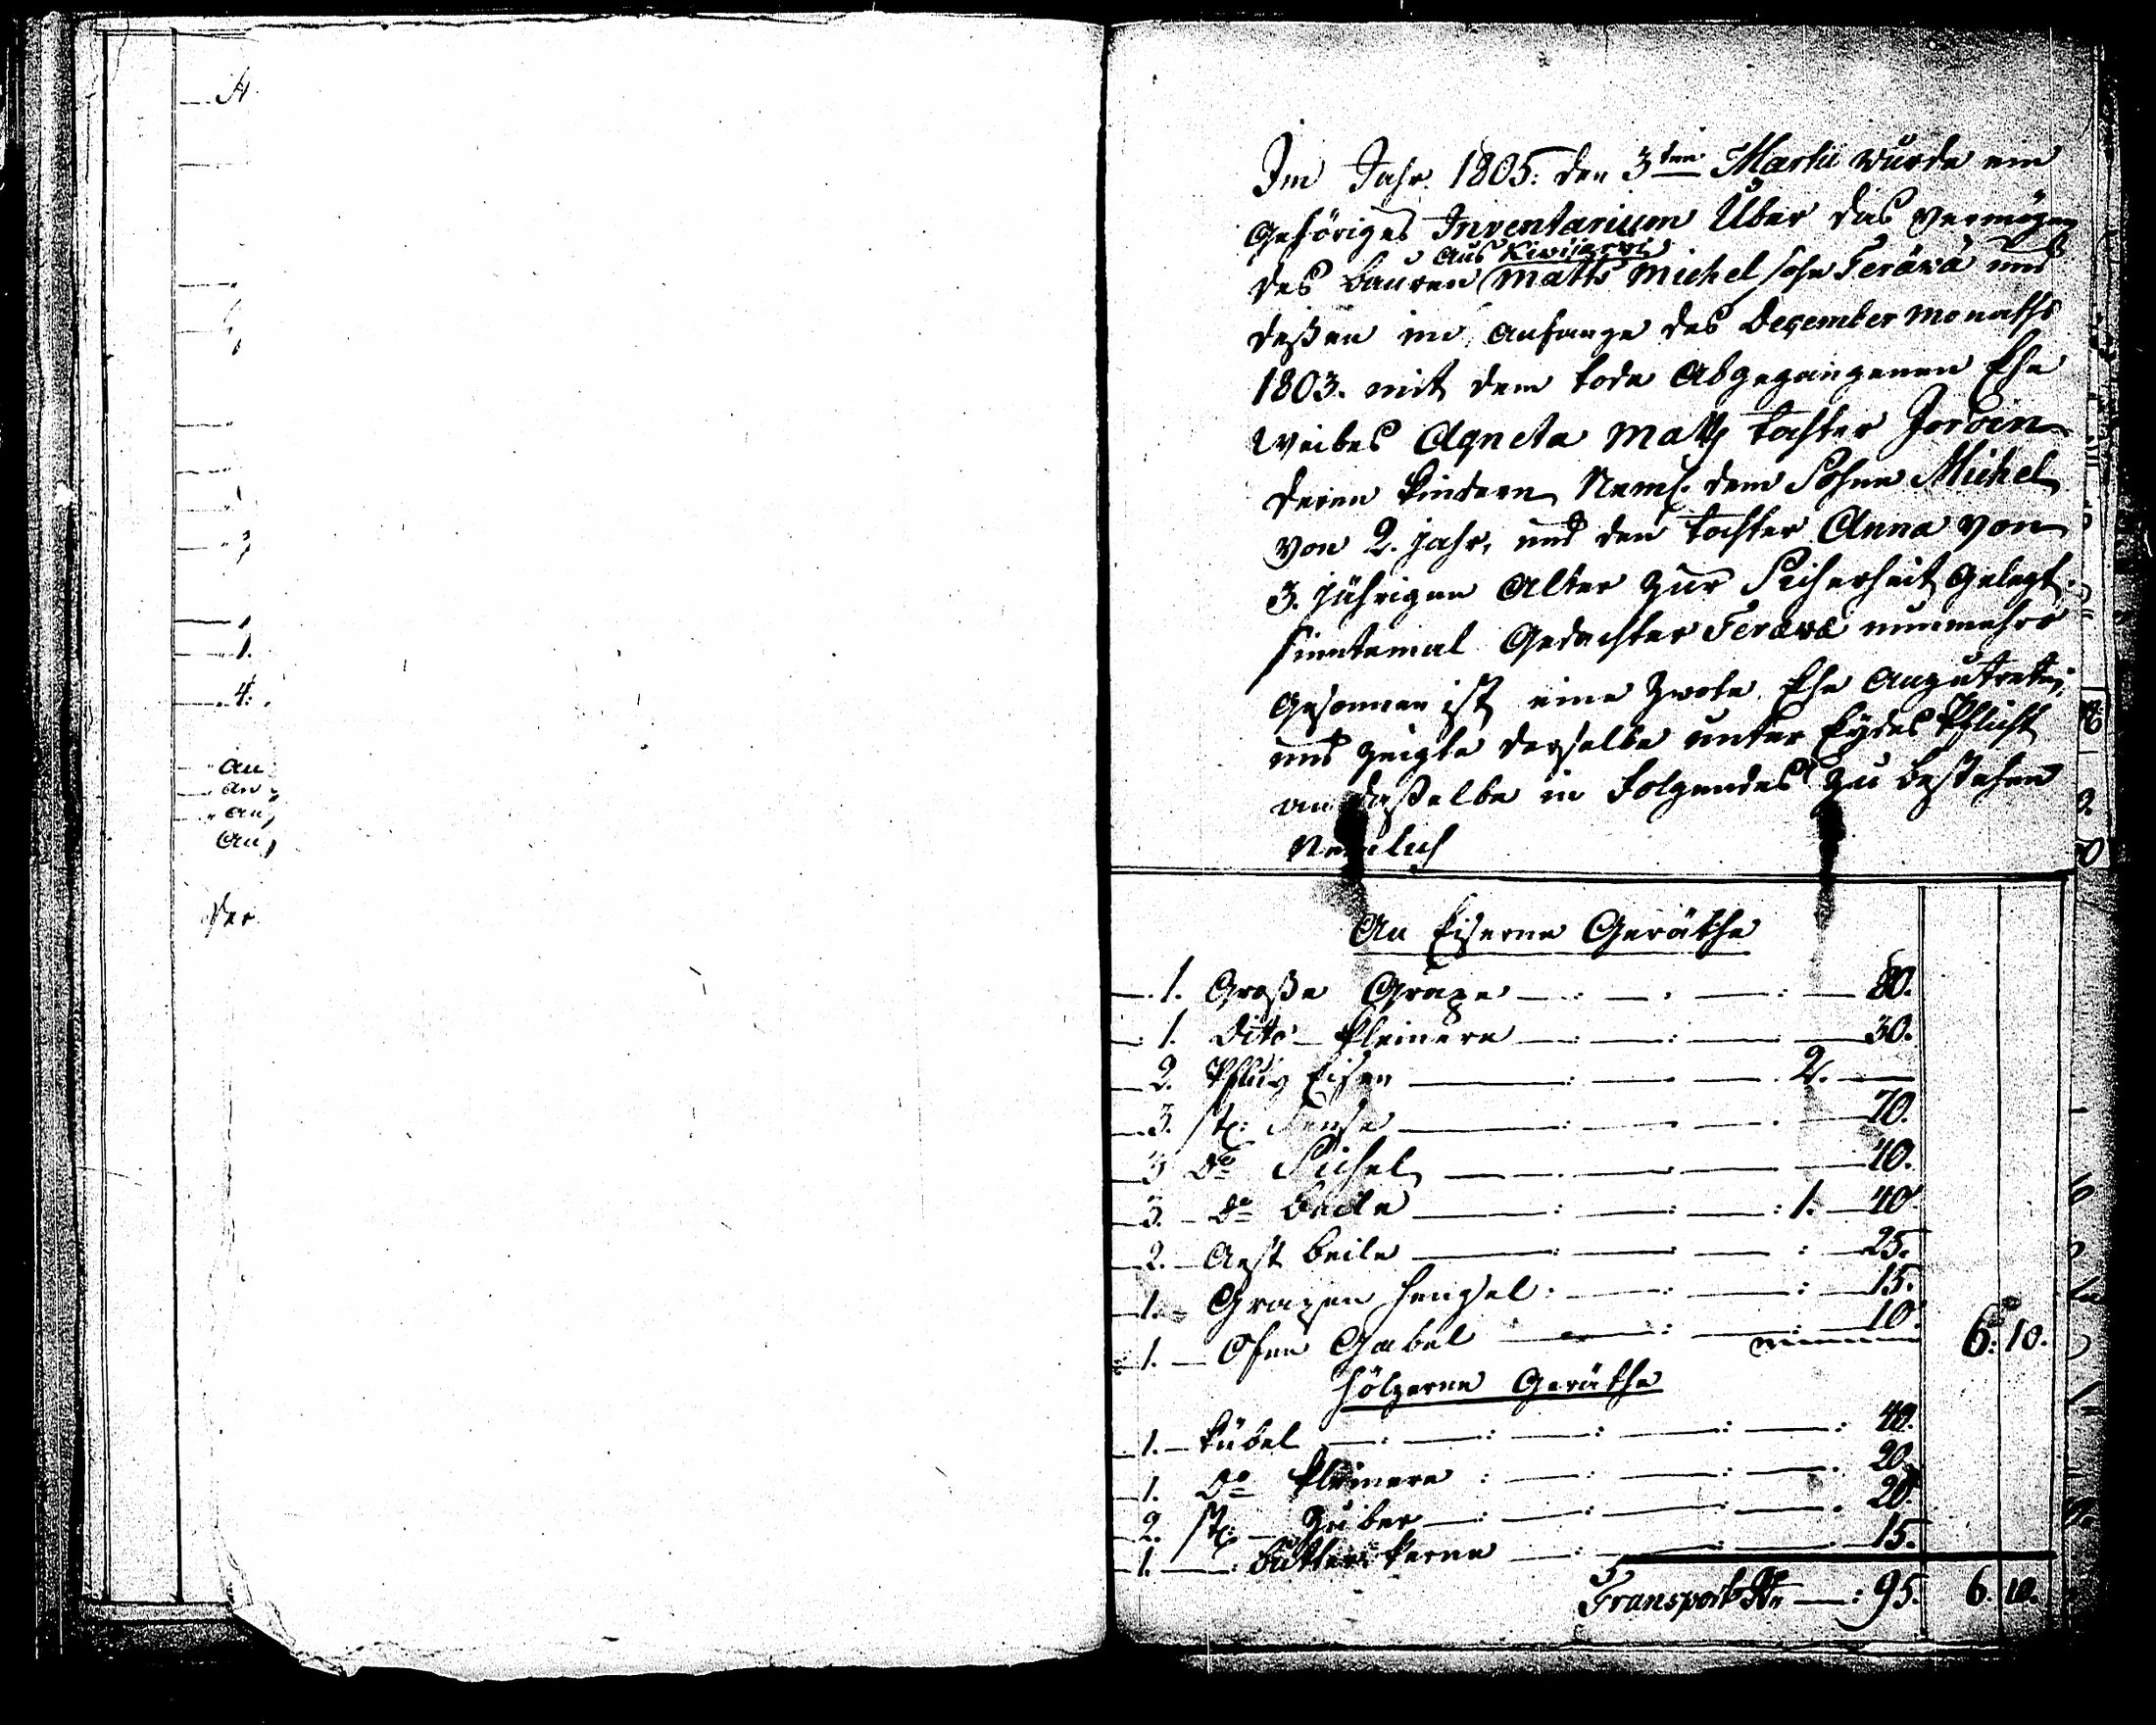 Im Jahr 1805: den 3ten Martii wurde ein
Gehöriges Inventarium Über das Vermögen
aus Kiviijerwi
des Bauren Matts Michel sohn Teräwä und
deßen im Anfange des December Monaths
1803. mit dem tode Abgegangenen Ehe
Weibes Agneta Matts tochter
deren Kindern Neml. dem Sohne Michel
von 2. jahr, und der tochter Anna von
3. jährigen Alter zur Sicherheit Gelegt.
sinntemal Gedachter Teräwä nunmehro
Gesonnen ist eine Zwote Ehe Anzutreten,
und zeigte derselbe unter Eydes Pflicht
an daßelbe in Folgendes zu bestehen
Nemlich
An Eiserne Geräthe
1. Große Grape 80.
1. Dito Kleinere 30.
2. Pflug Eisen 2.
3. st: Sense 70.
3 Do Sichel 40.
3. Do Beile 1. 40.
2. Aext beile 25.
1. Grapen Hengsel 15.
1. Ofen Gabel 10. 6. 10.
Hölzerne Geräthe
1. Kübel 40.
1. Do Kleinere 20.
2. st: Züber 20.
1. Butter Kerne 15.
Transport 95. 6. 10.
4:
An
An
An
An
der